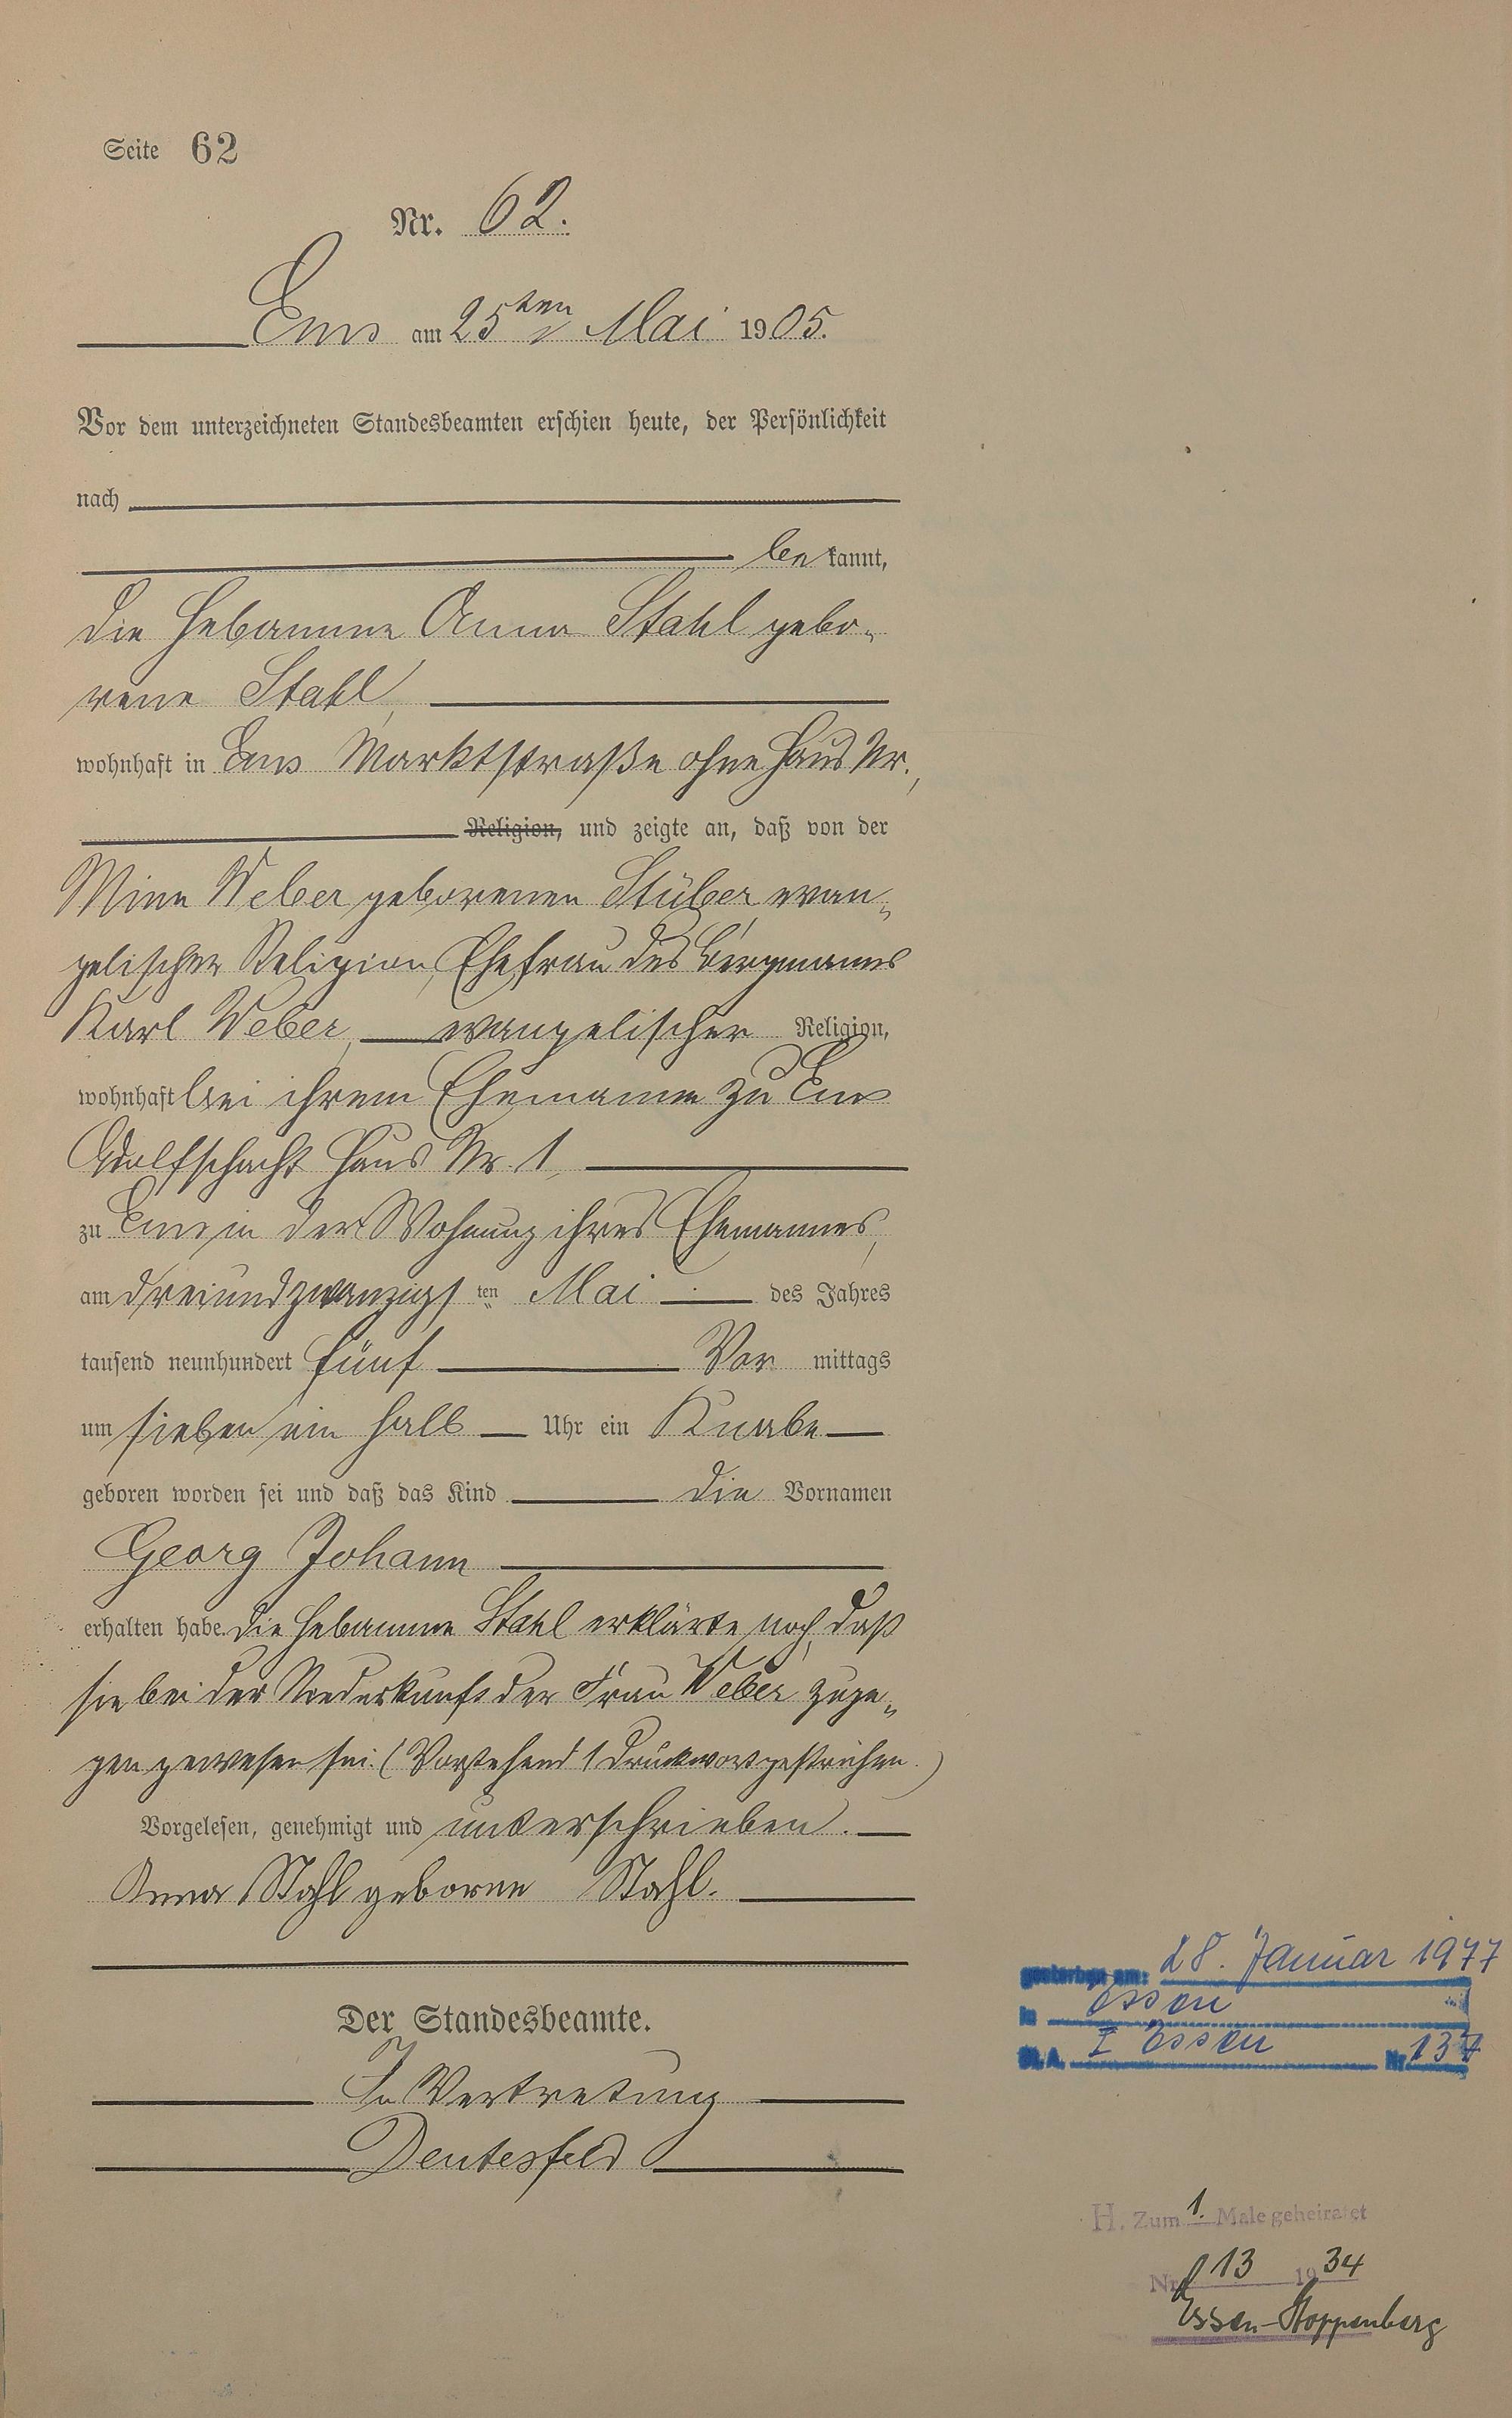 Seite 62
Nr. 62.
Ems am 25ten Mai 1905.
Vor dem unterzeichneten Standesbeamten erschien heute, der Persönlichkeit
nach
be kannt,
die Hebamme Anna Stahl gebo-
rene Stahl,
wohnhaft in Ems Marktstraße ohne Haus Nr.,
Religion, und zeigte an, daß von der
Mina Weber geborenen Stüber, evan-
gelischer Religion, Ehefrau des Bergmanns
Karl Weber, evangelischer Religion,
wohnhaft bei ihrem Ehemanne zu Ems
Adolfschacht Haus Nr. 1,
zu Ems in der Wohnung ihres Ehemannes,
am dreiundzwanzigs ten Mai des Jahres
tausend neunhundert fünf Vor mittags
um sieben ein halb Uhr ein Knabe
geboren worden sei und daß das Kind die Vornamen
Georg Johann
erhalten habe. Die Hebamme Stahl erklärte noch, daß
sie bei der Niederkunft der Frau Weber zuge-
gen gewesen sei. (Vorstehend 1 Druckwort gestrichen.)
Vorgelesen, genehmigt und unterschrieben.
Anna Stahl geborne Stahl.
Der Standesbeamte.
In Vertretung
Deutesfeld
gestorben am: 28. Januar 1977
in Essen
St. A. I Essen Nr. 137
H. Zum 1. Male geheiratet
Nr. 13 1934
Essen-Stoppenberg